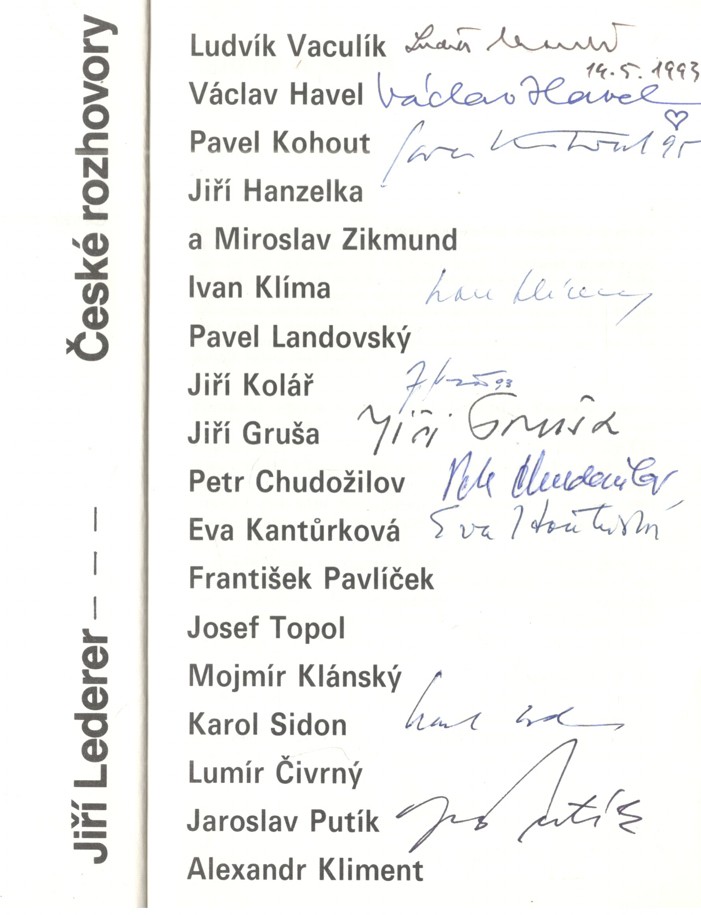 Jiří Lederer – – – České rozhovory
Ludvík Vaculík
14. 5. 1993
Václav Havel Václav Havel
Pavel Kohout 95
Jiří Hanzelka
a Miroslav Zikmund
Ivan Klíma Ivan Klíma
Pavel Landovský
Jiří Kolář 93
Jiří Gruša Jiří Gruša
Petr Chudožilov Petr Chudožilov
Eva Kantůrková Eva Kantůrková
František Pavlíček
Josef Topol
Mojmír Klánský
Karol Sidon
Lumír Čivrný
Jaroslav Putík Putík
Alexandr Kliment